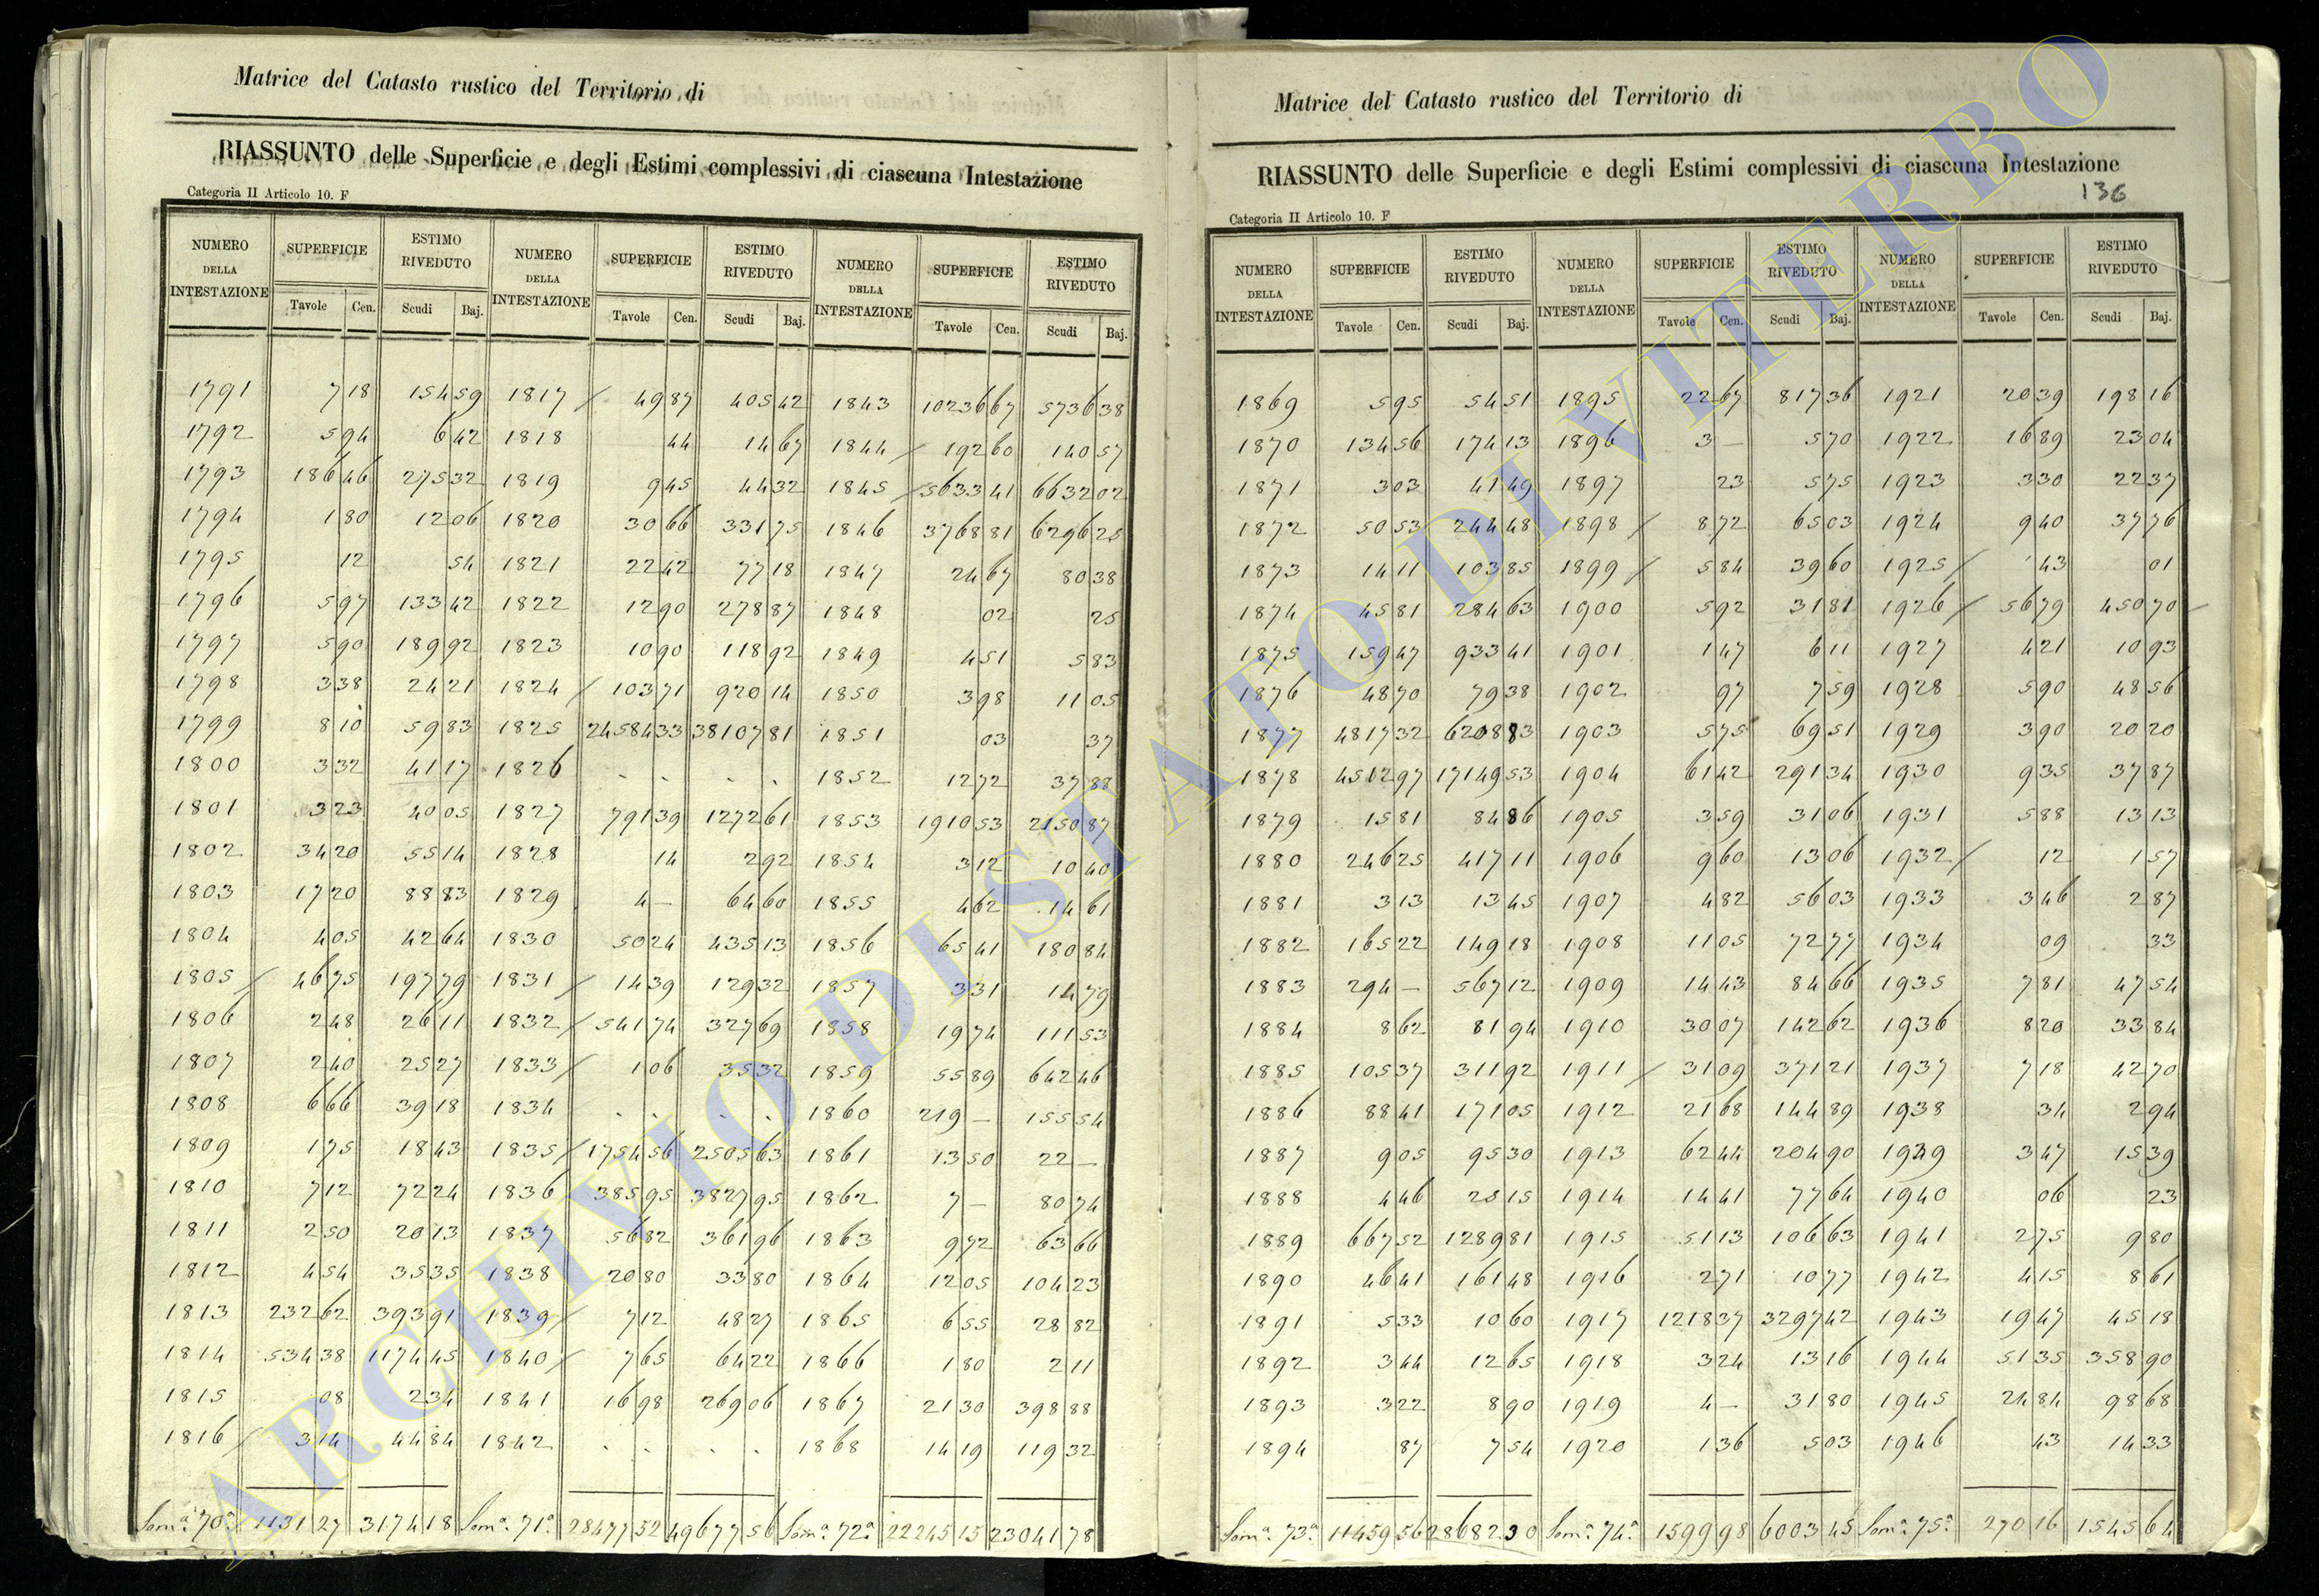 Matrice del Catasto rustico del Territorio di
RIASSUNTO delle Superficie e degli Estimi complessivi di ciascuna Intestazione
Categoria II Articolo 10. F
NUMERO DELLA INTESTAZIONE SUPERFICIE ESTIMO RIVEDUTO NUMERO DELLA INTESTAZIONE SUPERFICIE ESTIMO RIVEDUTO NUMERO DELLA INTESTAZIONE SUPERFICIE ESTIMO RIVEDUTO
Tavole Cen. Scudi Baj. Tavole Cen. Scudi Baj. Tavole Cen. Scudi Baj.
1791 7 18 154 59 1817 / 49 87 405 42 1843 10236 67 5736 38
1792 5 94 6 42 1818 44 14 67 1844 / 192 60 140 57
1793 186 46 275 32 1819 9 45 44 32 1845 / 5633 41 6632 02
1794 1 80 12 06 1820 30 66 331 75 1846 3768 81 6296 25
1795 12 54 1821 22 42 77 18 1847 24 67 80 38
1796 5 97 133 42 1822 12 90 278 87 1848 02 25
1797 5 90 189 92 1823 10 90 118 92 1849 4 51 5 83
1798 3 38 24 21 1824 / 103 71 920 14 1850 3 98 11 05
1799 8 10 59 83 1825 24584 33 38107 81 1851 03 37
1800 3 32 41 17 1826 . . . . 1852 12 72 37 88
1801 3 23 40 05 1827 791 39 1272 61 1853 1910 53 2150 87
1802 34 20 55 14 1828 14 2 92 1854 3 12 10 40
1803 17 20 88 83 1829 4 — 64 60 1855 4 62 14 61
1804 4 05 42 64 1830 50 24 435 13 1856 65 41 180 84
1805 / 46 75 197 79 1831 / 14 39 129 32 1857 3 31 14 79
1806 2 48 26 11 1832 / 541 74 327 69 1858 19 74 111 53
1807 2 40 25 27 1833 / 1 06 35 32 1859 55 89 642 46
1808 6 66 39 18 1834 . . . . 1860 219 — 155 54
1809 1 75 18 43 1835 / 1754 56 2505 63 1861 13 50 22 —
1810 7 12 72 24 1836 385 95 3827 95 1862 7 — 80 74
1811 2 50 20 13 1837 56 82 361 96 1863 9 72 63 66
1812 4 54 35 35 1838 20 80 33 80 1864 12 05 104 23
1813 232 62 393 91 1839 / 7 12 48 27 1865 6 55 28 82
1814 534 38 1174 45 1840 / 7 65 64 22 1866 1 80 2 11
1815 08 2 34 1841 16 98 269 06 1867 21 30 398 88
1816 / 3 14 44 84 1842 . . . . 1868 14 19 119 32
Som.ª 70.ª 1131 27 3174 18 Som.ª 71.ª 28477 52 49677 56 Som.ª 72.ª 22245 15 23041 78
Matrice del Catasto rustico del Territorio di
RIASSUNTO delle Superficie e degli Estimi complessivi di ciascuna Intestazione
136
Categoria II Articolo 10. F
NUMERO DELLA INTESTAZIONE SUPERFICIE ESTIMO RIVEDUTO NUMERO DELLA INTESTAZIONE SUPERFICIE ESTIMO RIVEDUTO NUMERO DELLA INTESTAZIONE SUPERFICIE ESTIMO RIVEDUTO
Tavole Cen. Scudi Baj. Tavole Cen. Scudi Baj. Tavole Cen. Scudi Baj.
1869 5 95 54 51 1895 22 67 817 36 1921 20 39 198 16
1870 134 56 174 13 1896 3 — 5 70 1922 16 89 23 04
1871 3 03 41 49 1897 23 5 75 1923 3 30 22 37
1872 50 53 244 48 1898 / 8 72 65 03 1924 9 40 37 76
1873 14 11 103 85 1899 / 5 84 39 60 1925 / 43 01
1874 45 81 284 63 1900 5 92 31 81 1926 / 56 79 450 70
1875 159 47 933 41 1901 1 47 6 11 1927 4 21 10 93
1876 48 70 79 38 1902 97 7 59 1928 5 90 48 56
1877 4817 32 6208 83 1903 5 75 69 51 1929 3 90 20 20
1878 4512 97 17149 53 1904 61 42 291 34 1930 9 35 37 87
1879 15 81 84 86 1905 3 59 31 06 1931 5 88 13 13
1880 246 25 417 11 1906 9 60 13 06 1932 / 12 1 57
1881 3 13 13 45 1907 4 82 56 03 1933 3 46 2 87
1882 165 22 149 18 1908 11 05 72 77 1934 09 33
1883 294 — 567 12 1909 14 43 84 66 1935 7 81 47 54
1884 8 62 81 94 1910 30 07 142 62 1936 8 20 33 84
1885 105 37 311 92 1911 / 31 09 371 21 1937 7 18 42 70
1886 88 41 171 05 1912 21 68 144 89 1938 34 2 94
1887 9 05 95 30 1913 62 44 204 90 1939 3 47 15 39
1888 4 46 28 15 1914 14 41 77 64 1940 06 23
1889 667 52 1289 81 1915 51 13 106 63 1941 2 75 9 80
1890 46 41 161 48 1916 2 71 10 77 1942 4 15 8 61
1891 5 33 10 60 1917 1218 37 3297 42 1943 19 47 45 18
1892 3 44 12 65 1918 3 24 13 16 1944 51 35 358 90
1893 3 22 8 90 1919 4 — 31 80 1945 24 84 98 68
1894 87 7 54 1920 1 36 5 03 1946 43 14 33
Som.ª 73.ª 11459 56 28682 30 Som.ª 74.ª 1599 98 6003 45 Som.ª 75.ª 270 16 1545 64
ARCHIVIO DI STATO DI VITERBO